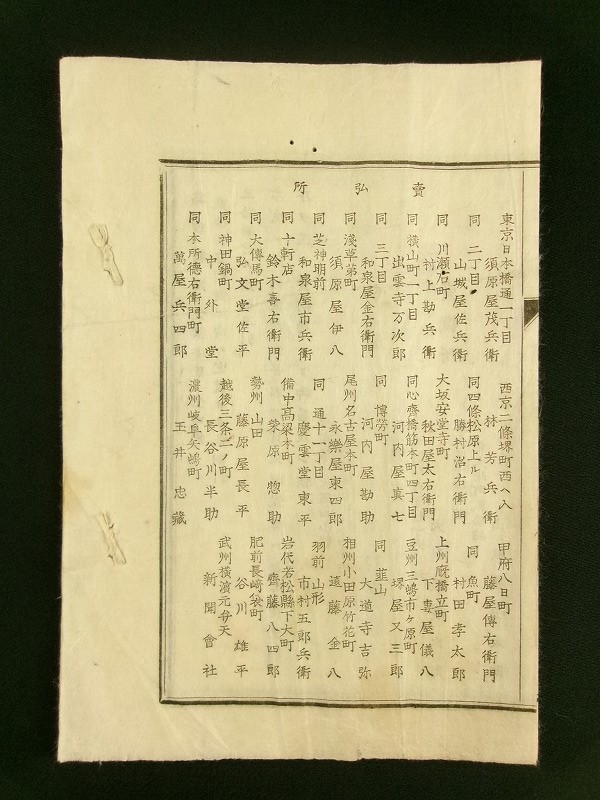 賣弘所
東京日本橋通一丁目
須原屋茂兵衛
同 二丁目
山城屋佐兵衛
同 川瀬石町
村上勘兵衛
同 横山町一丁目
出雲寺万次郎
同 三丁目
和泉屋金右衛門
同 淺草茅町
須原屋伊八
同 芝神明前
和泉屋市兵衛
同 十軒店
鈴木喜右衛門
同 大傳馬町
弘文堂佐平
同 神田鍋町
中外堂
同 本所德右衛門町
萬屋兵四郎
西京二條堺町西ヘ入
林芳兵衛
同四條松原上ル
勝村治右衛門
大坂安堂寺町
秋田屋太右衛門
同心齋橋筋本町四丁目
河内屋真七
同 博労町
河内屋勘助
尾州名古屋本町
永樂屋東四郎
同 通十一丁目
慶雲堂東平
備中高梁本町
榮原惣助
勢州山田
藤原屋長平
越後三条二ノ町
長谷川半助
濃州岐阜矢嶋町
玉井忠藏
甲府八日町
藤屋傳右衛門
同 魚町
村田孝太郎
上州厩橋立町
下妻屋儀八
豆州三嶋市ケ原町
堺屋又三郎
同 韮山
大道寺吉弥
相州小田原竹花町
遠藤金八
羽前山形
市村五郎兵衛
岩代若松縣下大町
齊藤八四郎
肥前長崎袋町
谷川雄平
武州横濱元弁天
新聞會社